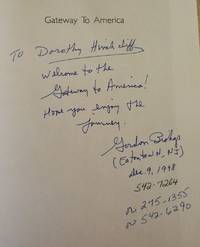 Gateway To America
To Dorothy Hinchcliff
Welcome to the
Gateway to America!
Hope you enjoy the
journey.
Gordon Bishop
(Eatontown, NJ)
Dec. 9, 1998
542-7264
or 275-1355
or 542-6290